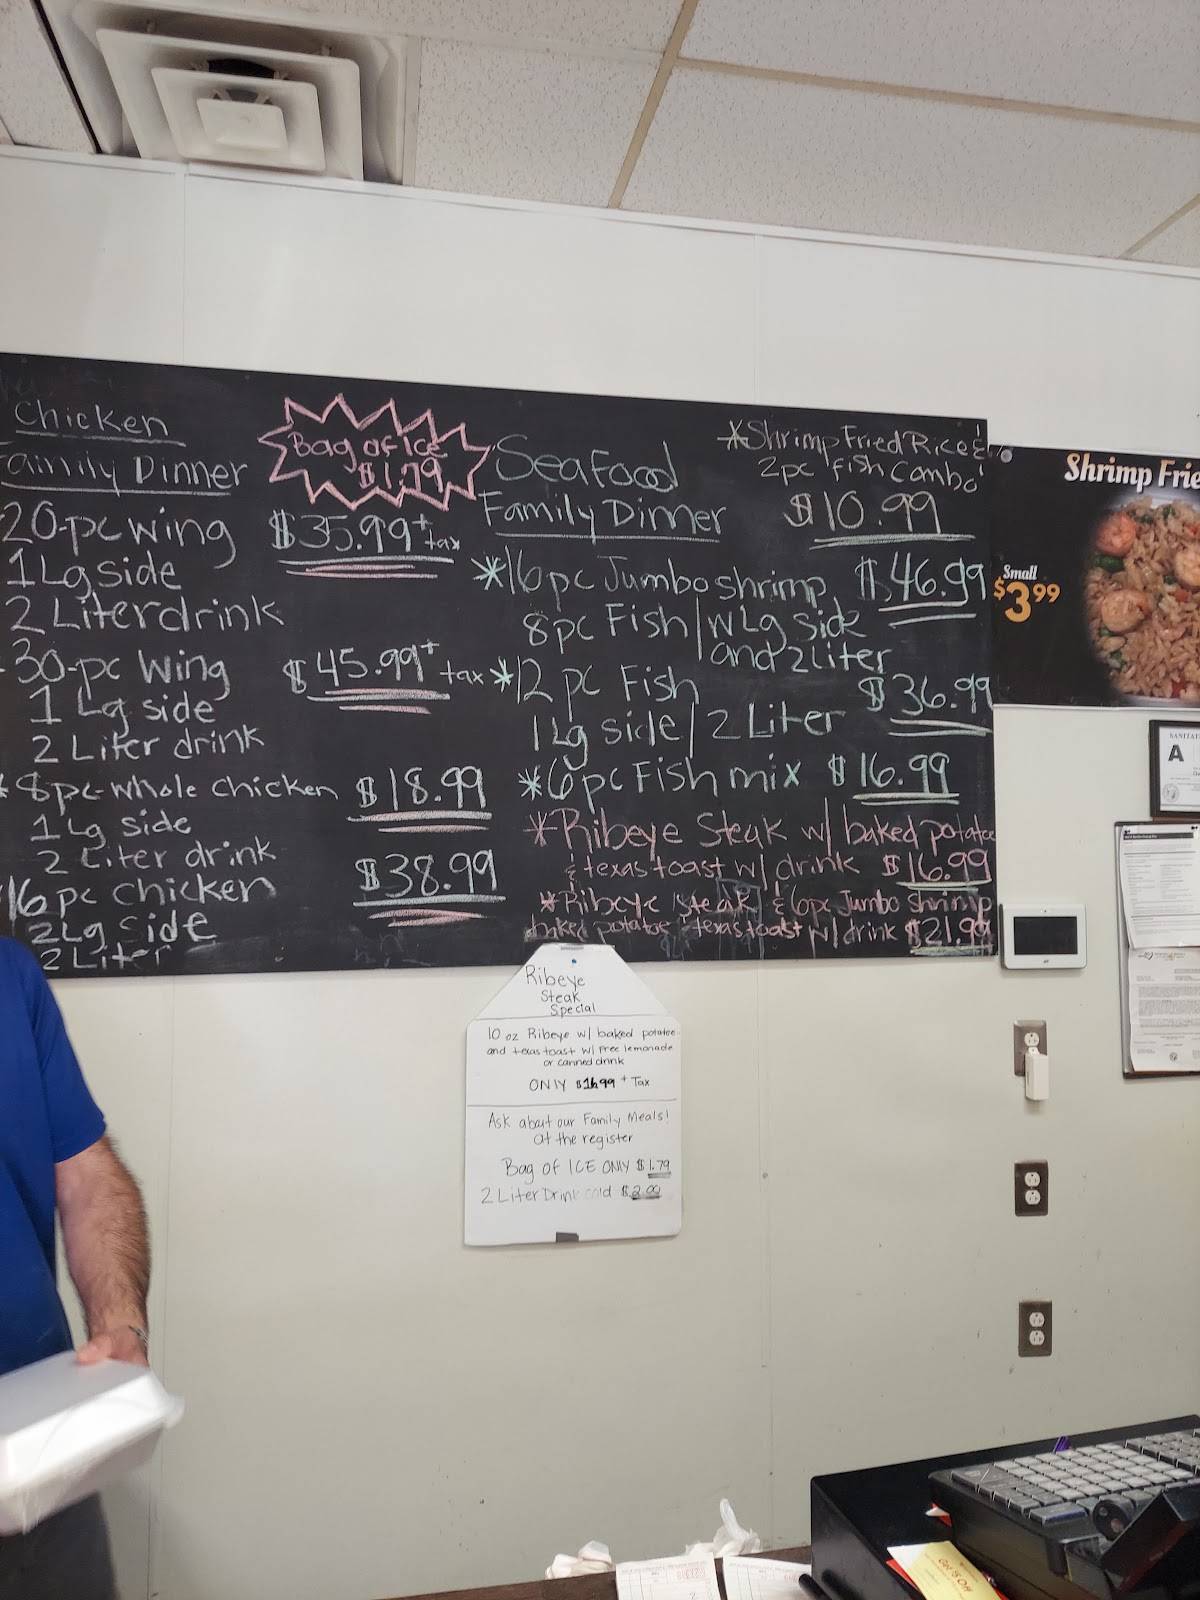 Chicken
Family Dinner
Bag of Ice
$1.79
20-pc wing $35.99 + tax
1 Lg side
2 Liter drink
30-pc Wing $45.99 + tax
1 Lg side
2 Liter drink
*8pc-whole chicken $18.99
1 Lg side
2 Liter drink
16 pc chicken $38.99
2 Lg Side
2 Liter
Seafood
Family Dinner
*Shrimp Fried Rice &
2pc fish combo
$10.99
*16 pc Jumbo shrimp $46.99
8pc Fish/w Lg side
and 2 Liter
*12 pc Fish $36.99
1 Lg side/2 Liter
*6 pc Fish mix $16.99
*Ribeye Steak w/ baked potatoe
& texas toast w/ drink $16.99
*Ribeye Steak & 6pc Jumbo Shrimp
baked potatoe texas toast w/ drink $21.99
Shrimp Frie
Small
$3.99
SANITAT
A
Ribeye
Steak
Special
10 oz Ribeye w/ baked potatoe
and texas toast w/ Free lemonade
or canned drink
ONLY $16.99 + Tax
Ask about our Family Meals!
at the register
Bag of ICE ONLY $1.79
2 Liter Drink cold $2.00